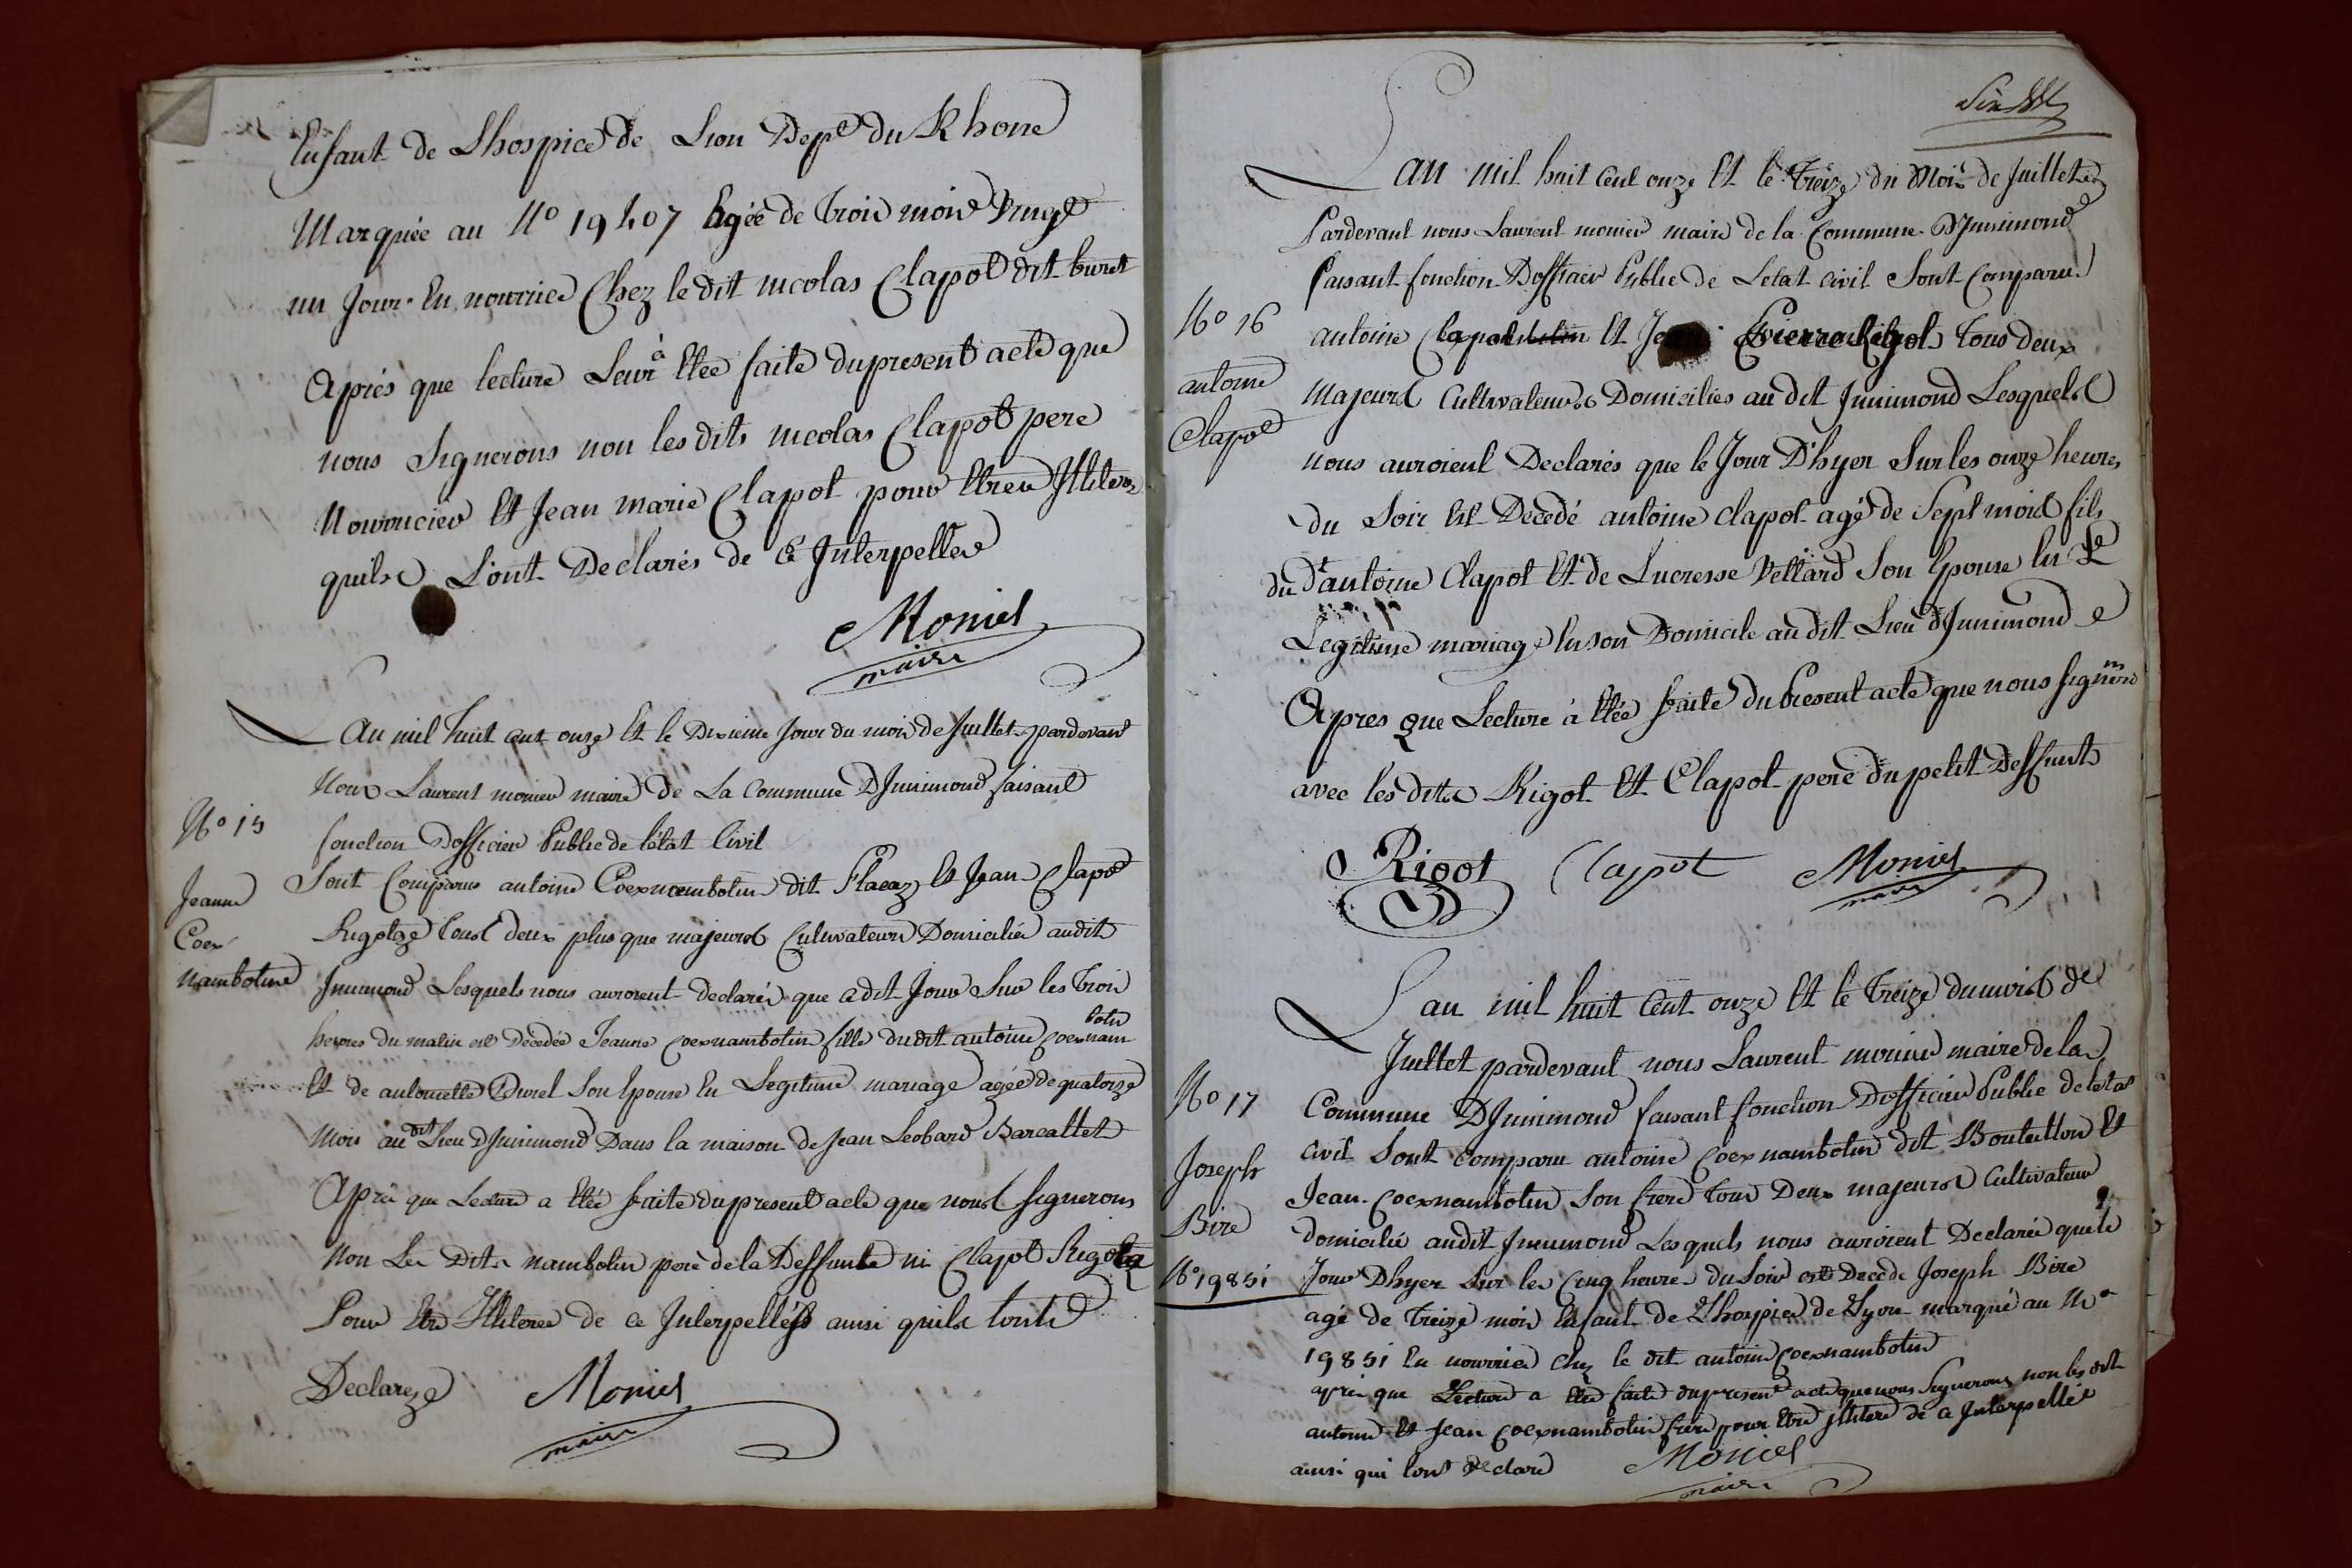 Enfant de Lhospice de Lion Dept du Rhone
Marquée au No 19407 Agée de Trois mois Vingt
un Jour En nourrice Chez le dit nicolas Clapot dit buret
Aprés que lecture Leur à Etee faite du present acte que
nous Signerons non les dits nicolas Clapot pere
Nourricier Et Jean marie Clapot pour Etre Illiterez
quils L'ont Declarés de Ce Interpellez
Monier
maire
L'an mil huit cent onze Et le Dixieme Jour du mois de Juillet pardevant
Nous Laurent monier maire de La Commune D'Innimond faisant
fonction Dofficier Public de l'état Civil
No 15
Jeanne
Coex
nambotin
Sont Comparus antoine Coexnambotin dit Placaz Et Jean Clapot
Rigotaz tous deux plus que majeurs Cultivateurs Domiciliés audit
Innimond Lesquels nous auroient declarés que cedit Jour Sur les Trois
heures du matin est Décédée Jeanne Coexnambotin fille dudit antoine Coexnambotin
Et de antoinette Durel Son Epouse En Legitime mariage agée de quatorze
Mois au dit Lieu D'Innimond Dans la maison de Jean Leobard Barcallet
Aprés que Lecture a Etée faite du present acte que nous signerons
Non Les Dits nambotin pere de la Deffunte ni Clapot Rigotaz
Pour Etre Illiteres de Ce Interpellés ainsi quils Lont
Declarez
Monier
maire
Six
L'an mil huit Cent onze Et le Treize du Mois de Juillet
Pardevant nous Laurent monier maire de la Commune D'Innimond
faisant fonction Dofficier Public de Letat Civil Sont Comparu
No 16
antoine
Clapot
antoine Clapot Et Pierre Rigot Tous deux
Majeurs Cultivateurs Domicilies au dit Innimond Lesquels
nous auroient Declarés que le Jour D'hyer Sur les onze heures
du Soir Est Decedé antoine Clapot agé de Sept mois fils
du dt antoine Clapot Et de Lucresse Vettard Son Epouse En
Legitime mariage En son Domicile au dit Lieu d'Innimond
Apres que Lecture à Etée faite du Present acte que nous signerons
avec les dits Rigot Et Clapot pere du petit Deffunt
Rigot Clapot Monier
maire
L'an mil huit Cent onze Et le Treize du mois de
Juillet pardevant nous Laurent monier maire de la
No 17
Joseph
Bire
No 19851
Commune D'Innimond faisant fonction Dofficier Public de letat
civil Sont Comparu antoine Coexnambotin dit Bouteillon Et
Jean Coexnambotin Son frere Tous Deux majeurs Cultivateurs
domiciliés audit Innimond Lesquels nous auroient Declarés que le
Jour D'hyer Sur les Cinq heures du Soir est Decede Joseph Bire
agé de Treize mois Enfant de Lhospice de Lyon marqué au No
19851 En nourrice Chez le dit antoine Coexnambotin
aprés que Lecture a Etée faite du present acte que nous Signerons non les dits
antoine Et Jean Coexnambotin frere pour Etre illiteré de Ce Interpellés
ainsi qui lont declaré
Monier
maire